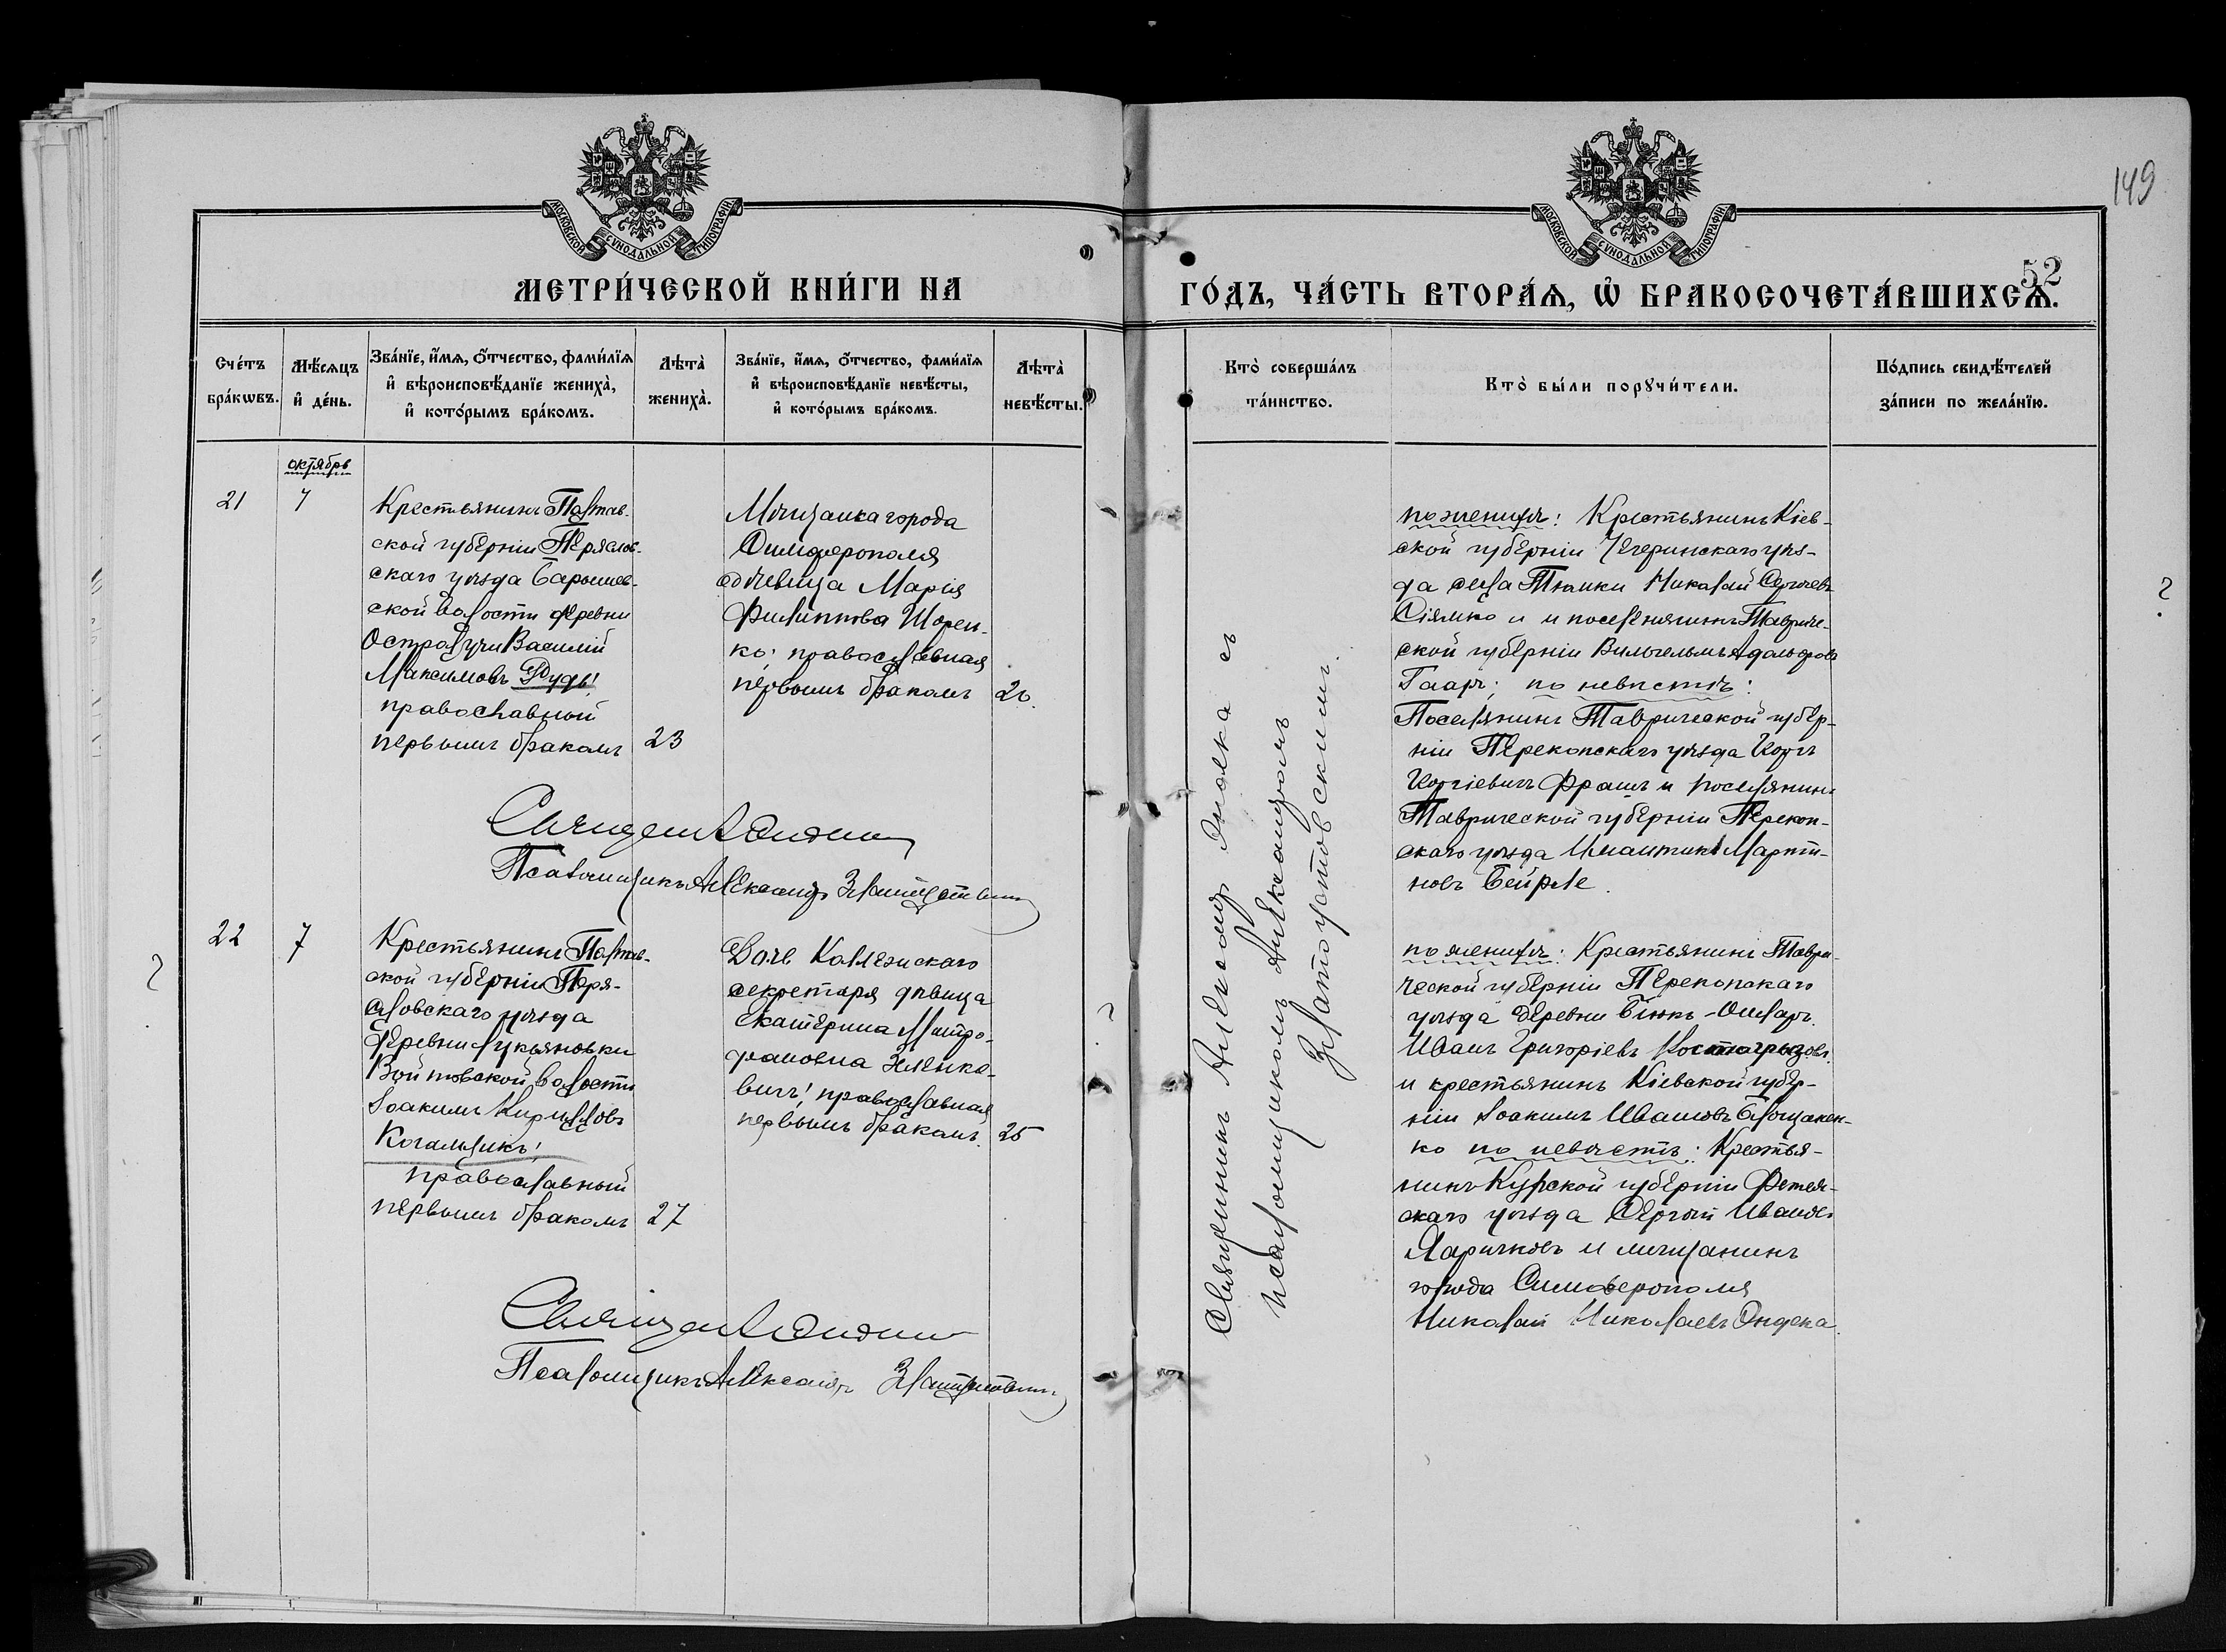 149
МОСКОВСКОЙ СѴНОДАЛЬНОЙ ТИПОГРАФІИ.
МОСКОВСКОЙ СѴНОДАЛЬНОЙ ТИПОГРАФІИ.
52
МЕТРИ́ЧЕСКОЙ КНИ́ГИ НА
ГО́ДЪ, ЧА́СТЬ ВТОРА́Ѧ, Ѡ҆ БРАКОСОЧЕТА́ВШИХСѦ.
Сче́тъ бра́кѡвъ.
Мѣ́сѧцъ и҆ де́нь.
Зва́нїе, и҆́мѧ, ѻ҆́тчество, фами́лїѧ
и҆ вѣроисповѣ́данїе жениха̀,
и҆ кото́рымъ бра́комъ.
Лѣта̀ жениха̀.
Зва́нїе, и҆́мѧ, ѻ҆́тчество, фами́лїѧ
и҆ вѣроисповѣ́данїе невѣ́сты,
и҆ кото́рымъ бра́комъ.
Лѣта̀ невѣ́сты.
Кто̀ соверша́лъ та́инство.
Кто̀ бы́ли порꙋчи́тели.
По́дпись свидѣ́телей за́писи по жела́нїю.
октябрь
21
7
Крестьянинъ Полтав-
ской губерніи Переяслов-
скаго уѣзда Барышев-
ской волости деревни
Остролучи Василій
Максимовъ Рудь!
православной
первымъ бракомъ
23
Мѣщанка города
Симферополя
дѣвица Марія
Филиппова Шорен-
ко; православная
первымъ бракомъ
20.
Псаломщикъ Александръ Златоустовскій
Священникъ Александръ съ
псаломщикомъ Александромъ
Златоустовскимъ.
по женихѣ: Крестьянинъ Кіев-
ской губерніи Чегеринскаго уѣз-
да села Тюмки Николай Сергѣевъ
Сіялко и и поселянинъ Тавриче-
ской губерніи Вильгельмъ Адольфовъ
Гааръ; по невѣстѣ:
Поселянинъ Таврической губер-
ніи Перекопскаго уѣзда
и поселянинъ
Таврической губерніи Переко-
скаго уѣзда Марти-
новъ Бейрле.
22
7
Крестьянинъ Полтав-
ской губерніи Перея-
словскаго уѣзда
деревни Лукьяновки
Войтовской волости
Іоакимъ Кирилловъ
Качальщикъ!
православный
первымъ бракомъ
27
Дочь Коллежскаго
секретаря дѣвица
Екатерина Митро-
фановна Зенько-
вичъ! православная
первымъ бракомъ
25
Псаломщикъ Александръ Златоустовскій
по женихѣ: Крестьянинъ Таври-
ческой губерніи Перекопскаго
уѣзда деревни Біюкъ-Онларъ
Иванъ Григоріевъ Костогрызовъ
и крестьянинъ Кіевской губер-
ніи Іоакимъ Ивановъ
ко по невѣстѣ: Крестья-
нинъ Курской губерніи Фатеж-
скаго уѣзда Сергѣй Ивановъ
Ларичковъ и мѣщанинъ
города Симферополя
Николай Николаевъ Ондека.